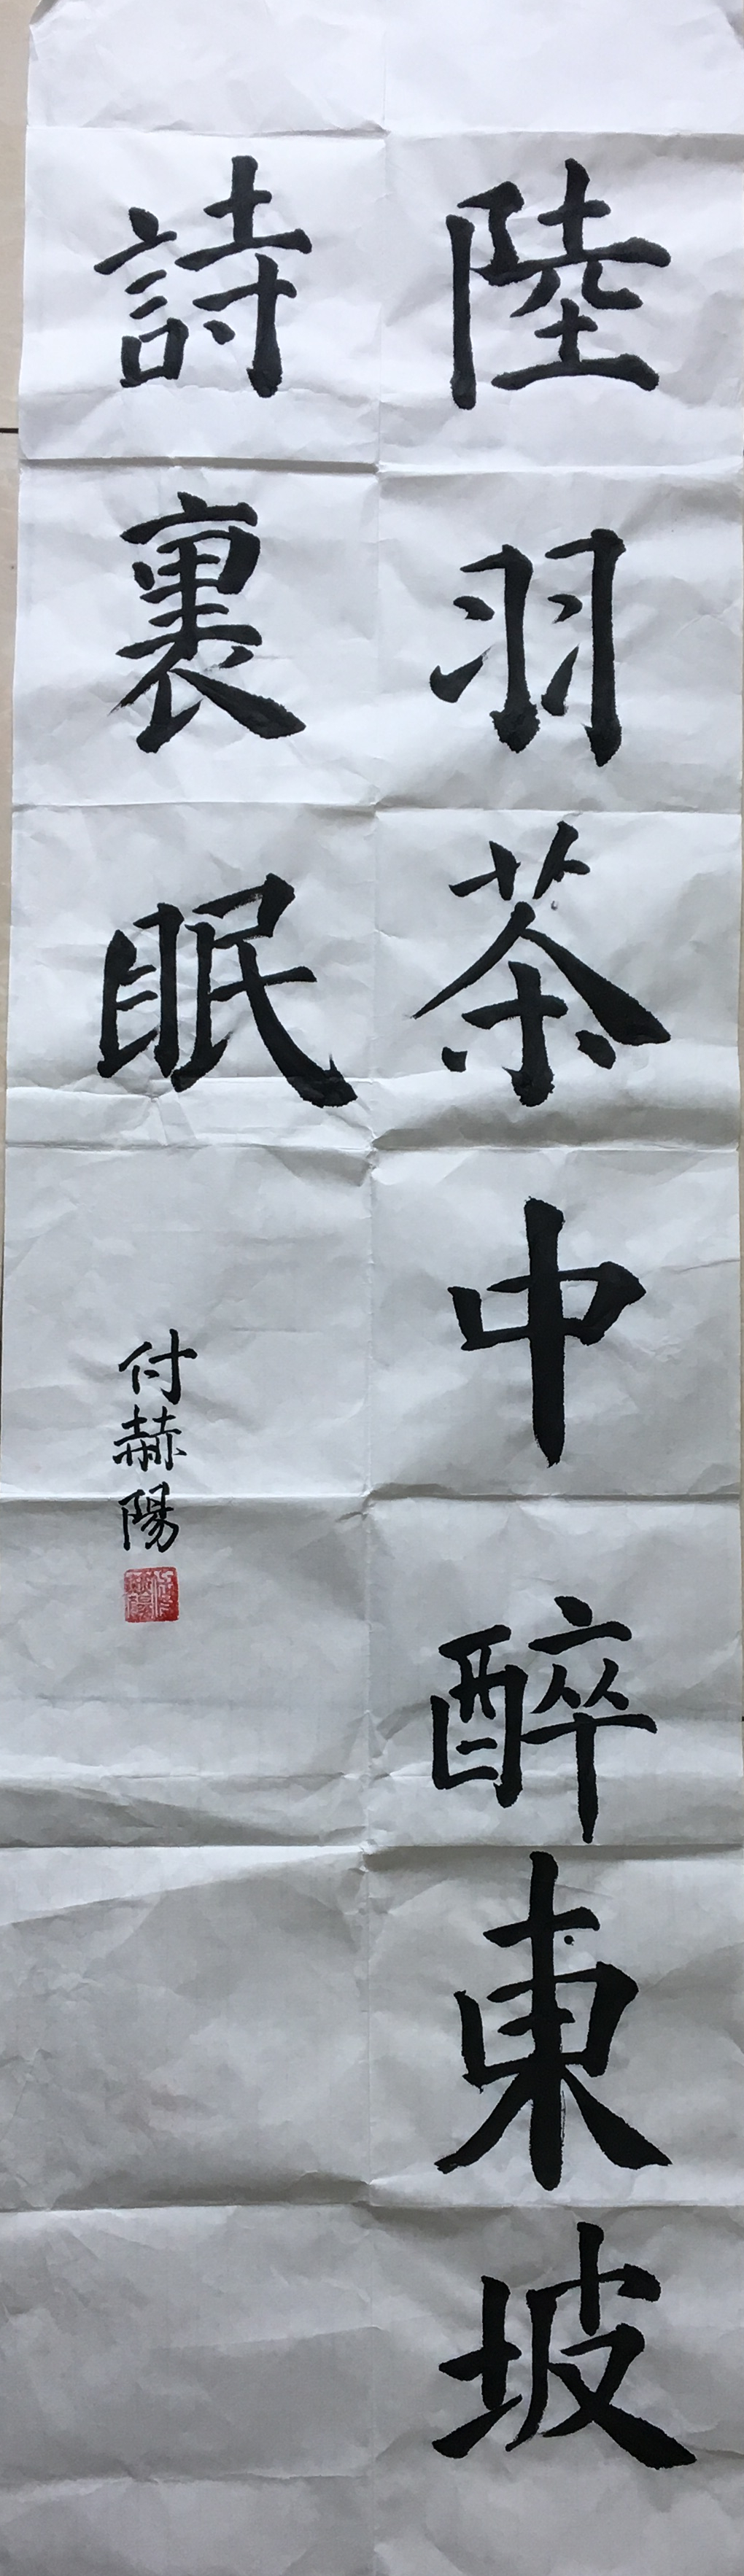 陸羽茶中醉東坡
詩裏眠
付赫陽